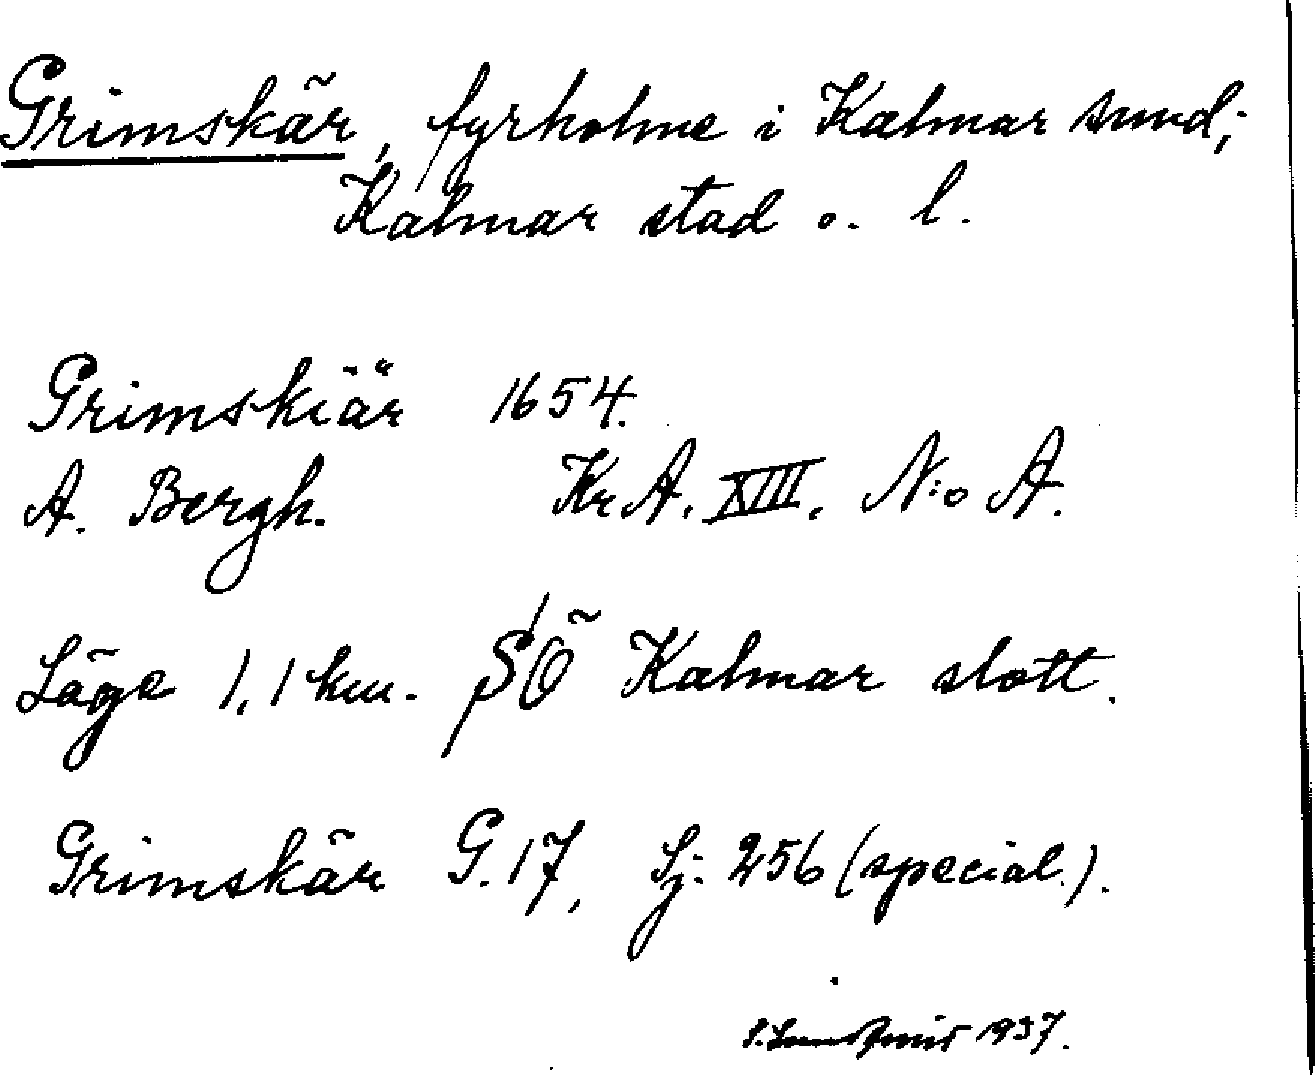 Grimskär, fyrholme i Kalmar sund;
Kalmar stad o. l.
Grimskiär 1654.
A. Bergh. Kr A. XIII. N:o A.
Läge 1,1 km. SÖ Kalmar slott.
Grimskär G. 17, Sj: 256 (special.).
1937.